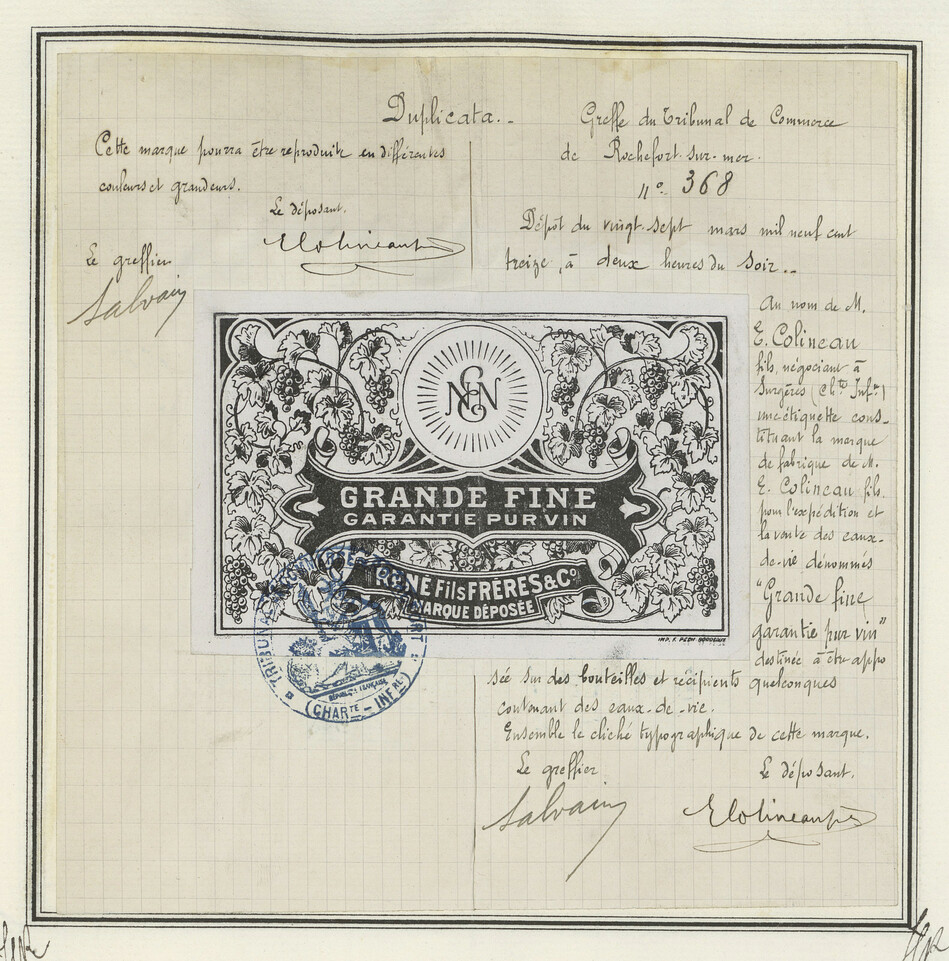 Duplicata.-
Cette marque pourra être reproduite en différentes
couleurs et grandeurs.
Le déposant.
EColineaufs
Le greffier
Salvain
Greffe du Tribunal de Commerce
de Rochefort-sur-mer.
n° 368
Dépôt du vingt-sept mars mil neuf cent
treize, à deux heures du soir..
Au nom de M.
E. Colineau
fils, négociant à
Surgères (Chte Infre)
une étiquette cons-
tituant la marque
de fabrique de M.
E. Colineau fils.
pour l'expédition et
la vente des eaux-
de-vie dénommés
"Grande fine
garantie pur vin"
destinée à être appo
sée sur des bouteilles et récipients quelconques
contenant des eaux-de-vie.
Ensemble le cliché typographique de cette marque.
Le greffier
Le déposant.
Salvain
EColineaufs
GRANDE FINE
GARANTIE PUR VIN
RENÉ Fils FRÈRES & Co
MARQUE DÉPOSÉE
TRIBUNAL
RÉPUBLIQUE FRANÇAISE
(CHARTE - INFRE)